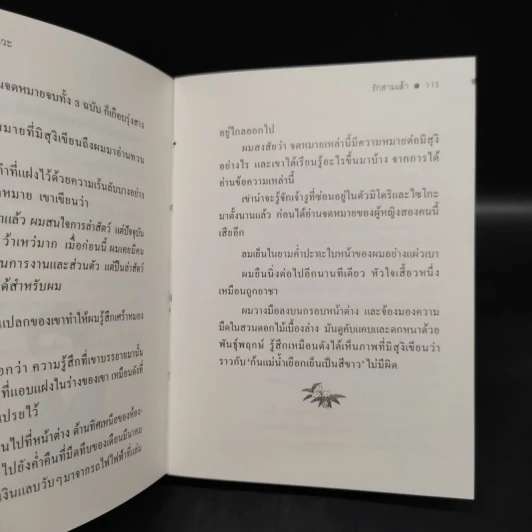 วะ
นจดหมายจบทั้ง 3 ฉบับ ก็เกือบรุ่งสาง
มายที่มิสุงิเขียนถึงผมมาอ่านทวน
ำที่แฝงไว้ด้วยความเร้นลับบางอย่าง
หมาย เขาเขียนว่า
แล้ว ผมสนใจการล่าสัตว์ แต่ปัจจุบัน
ว้าเหว่มาก เมื่อก่อนนี้ ผมเคยมีคน
นการงานและส่วนตัว แต่ปืนล่าสัตว์
ด้สำหรับผม
แปลกของเขาทำให้ผมรู้สึกเศร้าหมอง
อกว่า ความรู้สึกที่เขาบรรยายมานั้น
ที่แอบแฝงในร่างของเขา เหมือนดังที่
เปรยไว้
นไปที่หน้าต่าง ด้านทิศเหนือของห้อง-
ไปยังค่ำคืนที่มืดทึบของเดือนมีนาคม
เงินแลบวับๆ มาจากรถไฟไฟฟ้าที่แล่น
รักสามเส้า ● 115
อยู่ไกลออกไป
ผมสงสัยว่า จดหมายเหล่านี้มีความหมายต่อมิสุงิ
อย่างไร และเขาได้เรียนรู้อะไรขึ้นมาบ้าง จากการได้
อ่านข้อความเหล่านี้
เขาน่าจะรู้จักเจ้างูที่ซ่อนอยู่ในตัวมิโดริและไซโกะ
มาตั้งนานแล้ว ก่อนได้อ่านจดหมายของผู้หญิงสองคนนี้
เสียอีก
ลมเย็นในยามค่ำปะทะใบหน้าของผมอย่างแผ่วเบา
ผมยืนนิ่งต่อไปอีกนานทีเดียว หัวใจเสี้ยวหนึ่ง
เหมือนถูกยาชา
ผมวางมือลงบนกรอบหน้าต่าง และจ้องมองความ
มืดในสวนดอกไม้เบื้องล่าง มันดูคับแคบและดกหนาด้วย
พันธุ์พฤกษ์ รู้สึกเหมือนดังได้เห็นภาพที่มิสุงิเขียนว่า
ราวกับ ‘ก้นแม่น้ำเยือกเย็นเป็นสีขาว’ ไม่มีผิด